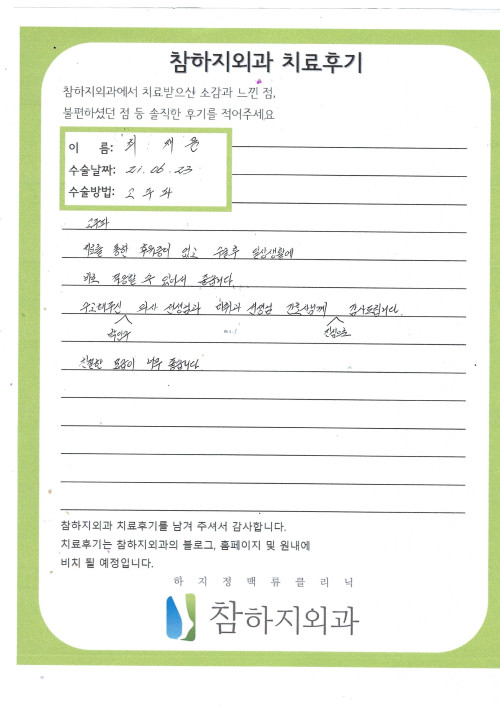 참하지외과 치료후기
참하지외과에서 치료받으신 소감과 느낀 점,
불편하셨던 점 등 솔직한 후기를 적어주세요
이 름: 최
수술날짜: 21.06.23
수술방법: 고주파
고주파
치료를 통한 후유증이 없고 수술후 일상생활에
바로 적응할 수 있어서 좋습니다.
수고해주신 의사 선생님과 마취과 선생님 간호사님께 감사드립니다.
진심으로
친절한 모습이 너무 좋습니다
참하지외과 치료후기를 남겨 주셔서 감사합니다.
치료후기는 참하지외과의 블로그, 홈페이지 및 원내에
비치 될 예정입니다.
하지정맥류클리닉
참하지외과